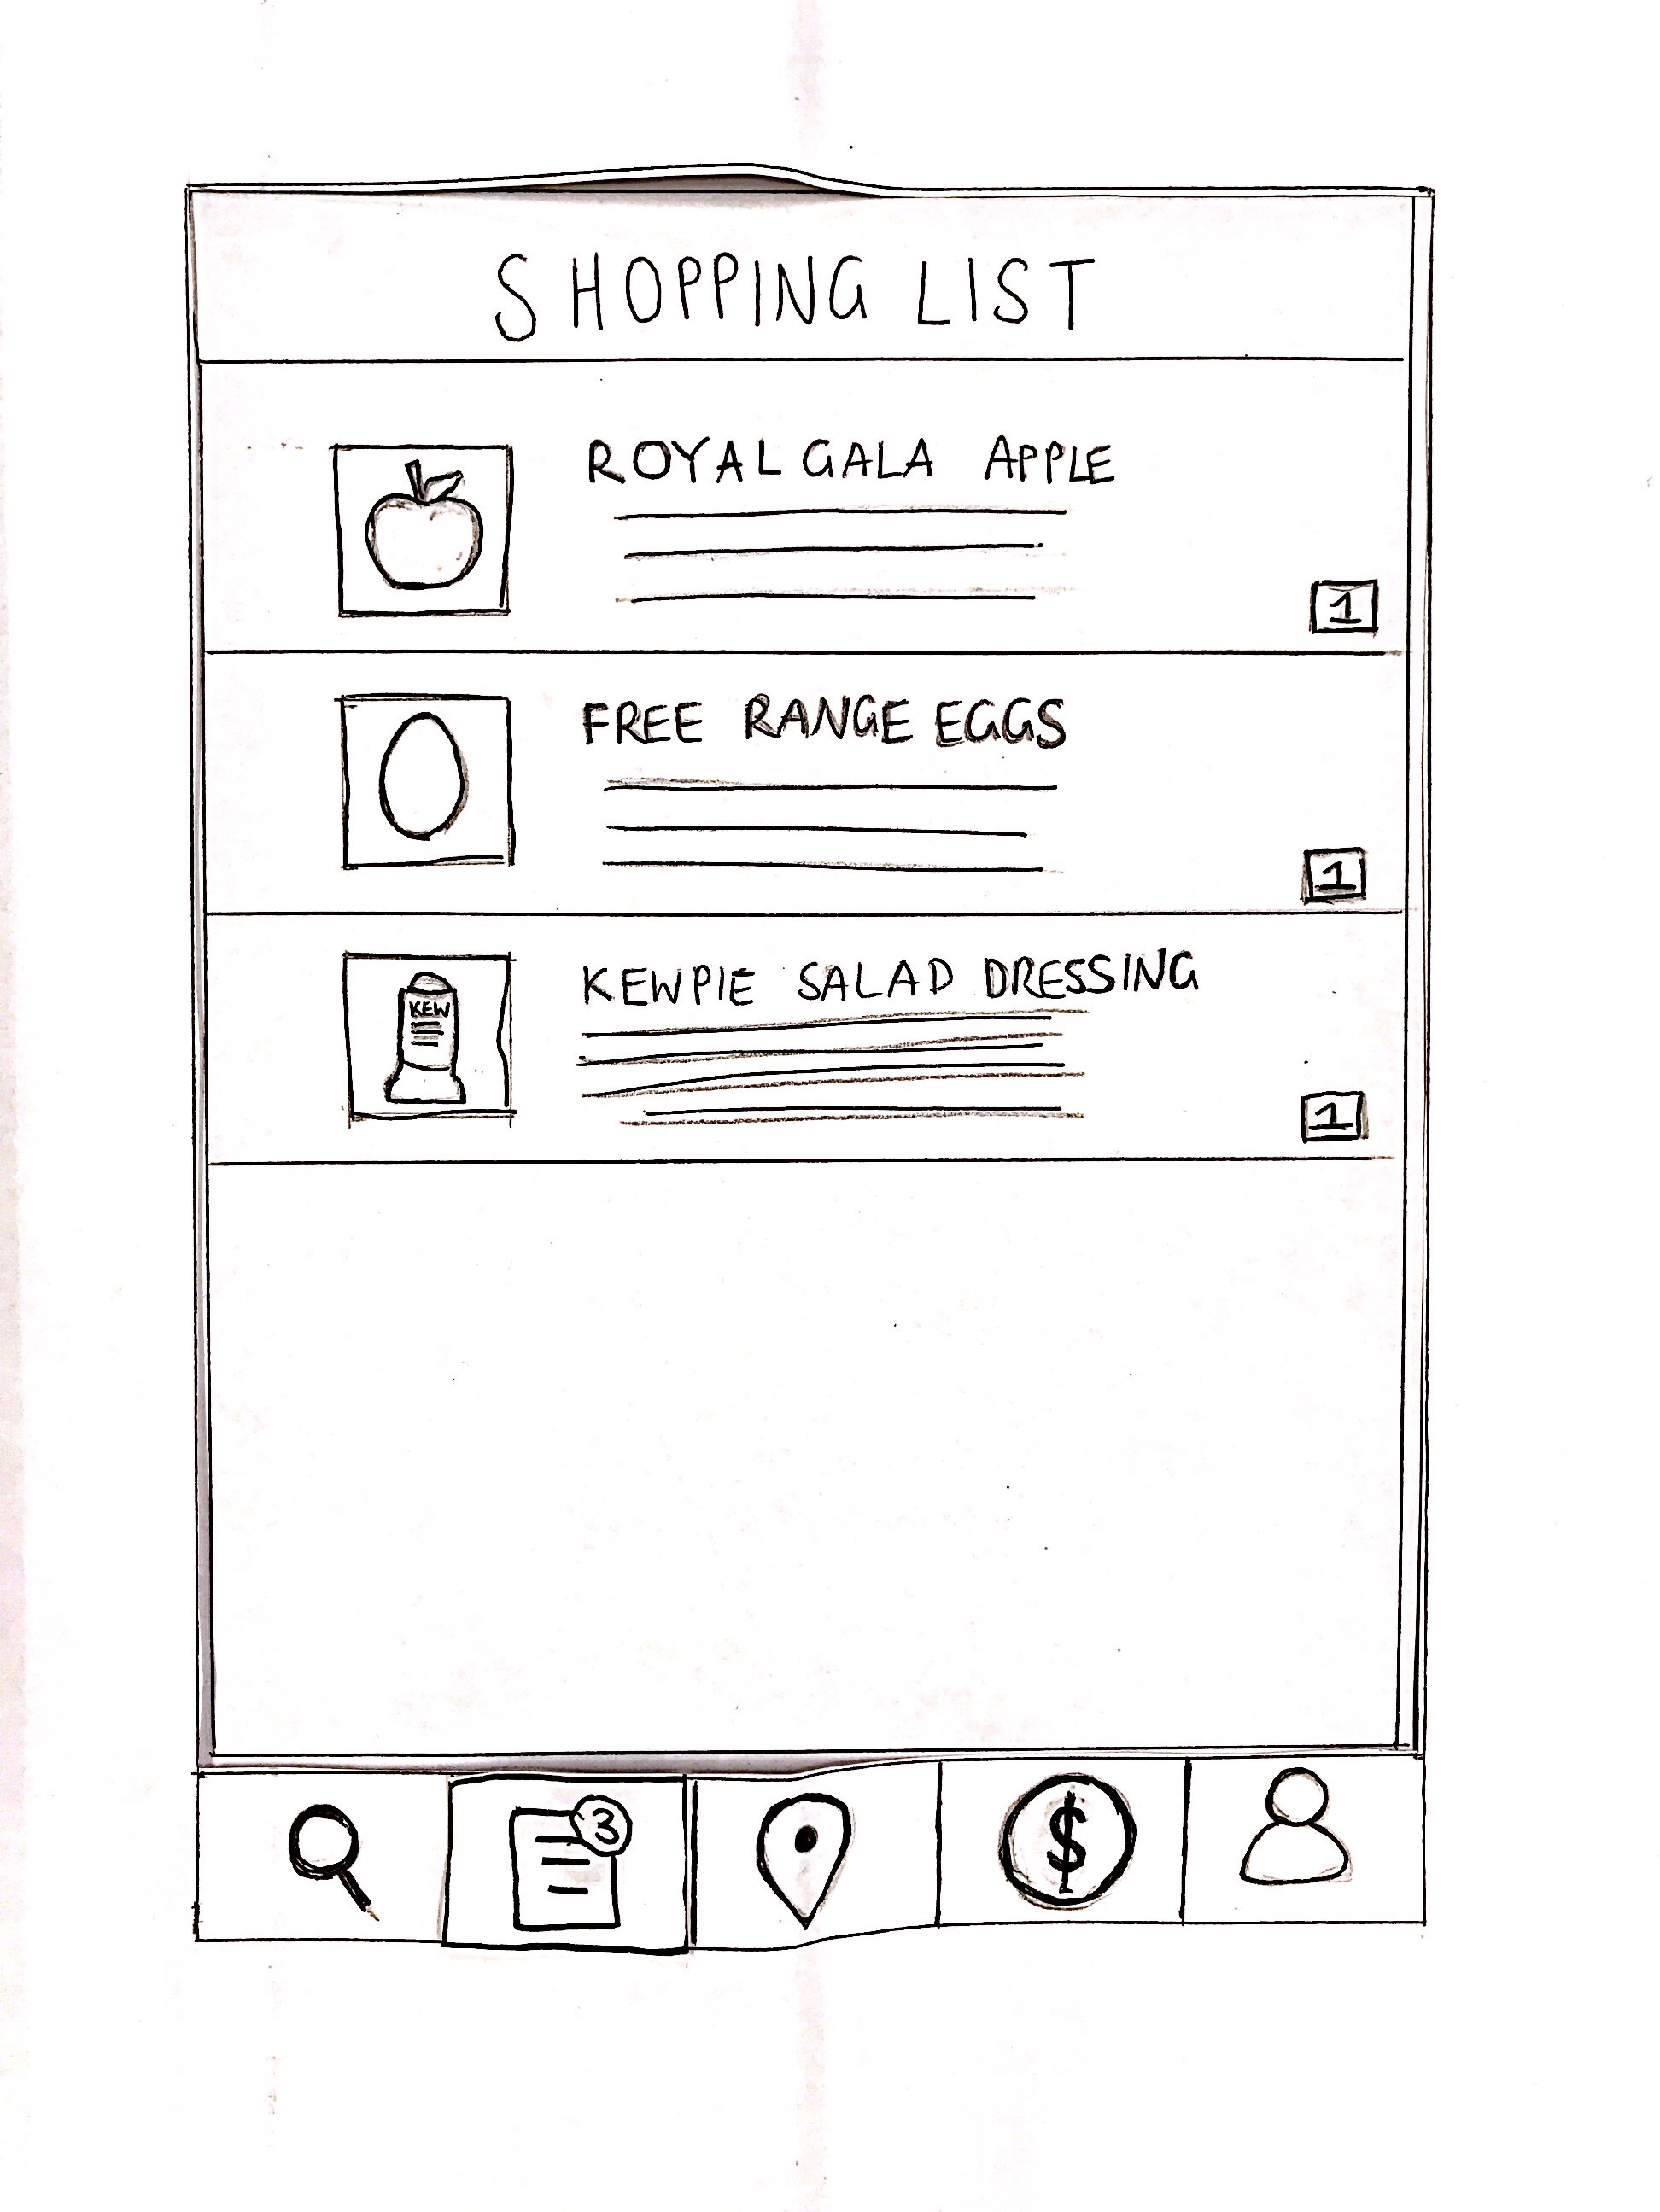 SHOPPING LIST
ROYAL GALA APPLE
1
FREE RANGE EGGS
1
KEWPIE SALAD DRESSING
KEW
1
3
$